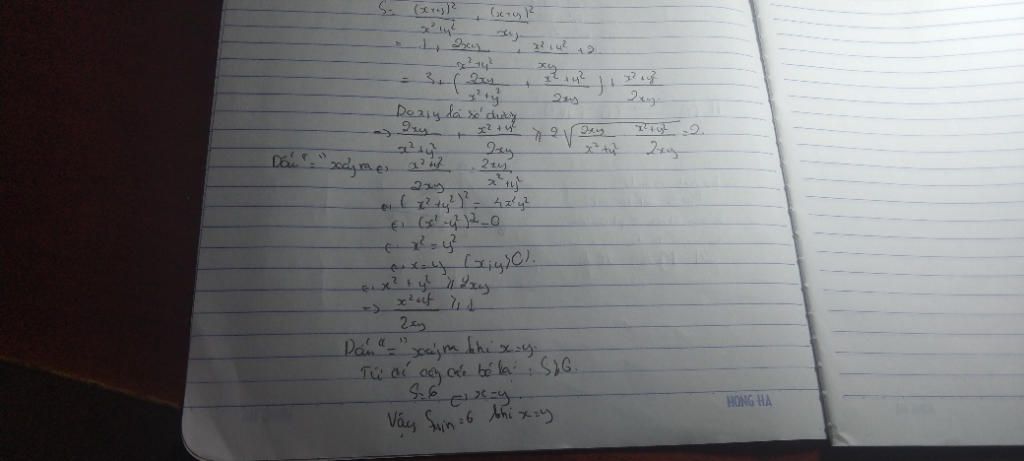 S = (x+y)²/(x²+y²) + (x+y)²/xy
= 1 + 2xy/(x²+y²) + (x²+y²)/xy + 2
= 3 + (2xy/(x²+y²) + (x²+y²)/2xy) + (x²+y²)/2xy
Do x,y là số dương
=> 2xy/(x²+y²) + (x²+y²)/2xy ≥ 2√(2xy/(x²+y²) · (x²+y²)/2xy) = 2
Dấu "=" xảy ra <=> (x²+y²)/2xy = 2xy/(x²+y²)
<=> (x²+y²)² = 4x²y²
<=> (x²-y²)² = 0
<=> x² = y²
<=> x=y (x,y>0).
x²+y² ≥ 2xy
=> (x²+y²)/2xy ≥ 1
Dấu "=" xảy ra khi x=y
S≥6
S=6 <=> x=y
Vậy Smin=6 khi x=y
HONG HA